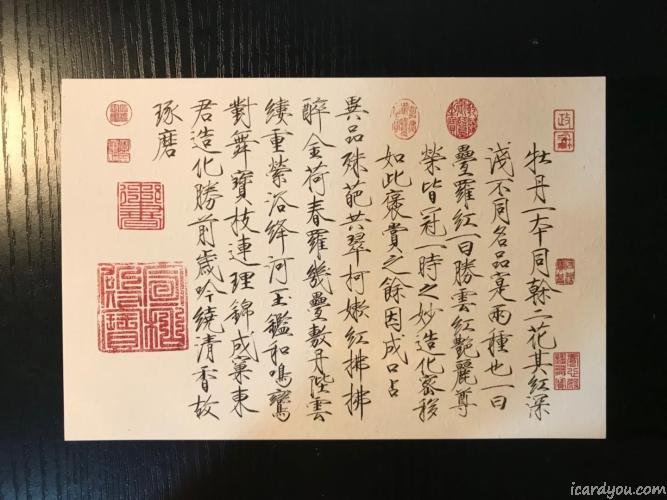 牡丹一本同榦二花其紅深
淺不同名品寔兩種也一曰
疊羅紅一曰勝雲紅艷麗尊
榮皆冠一時之妙造化密移
如此褒賞之餘因成口占
異品殊葩共翠柯嫩紅拂拂
醉金荷春羅幾疊敷丹陛雲
縷重縈浴絳河玉鑑和鳴鸞
對舞寶枝連理錦成窠東
君造化勝前歲吟繞清香故
琢磨
icardyou.com